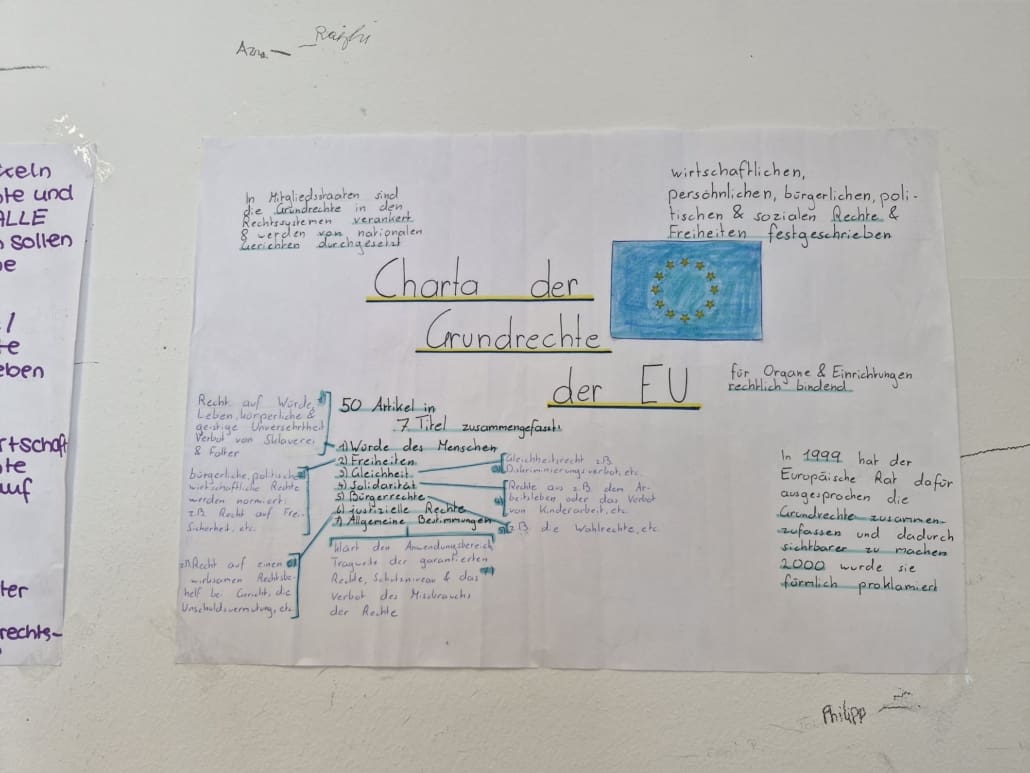 Azra
Raizhi
xeln
ote und
ALLE
sollen
e
te
eben
rtschaft
ote
auf
ter
rechts-
In Mitgliedsstaaten sind
die Grundrechte in den
Rechtssystemen verankert
& werden von nationalen
Gerichten durchgesetzt
wirtschaftlichen,
persöhnlichen, bürgerlichen, poli-
tischen & sozialen Rechte &
Freiheiten festgeschrieben
Charta der
Grundrechte
der EU
für Organe & Einrichtungen
rechtlich bindend
50 Artikel in
7 Titel zusammengefasst:
1) Würde des Menschen
2) Freiheiten
3) Gleichheit
4) Solidarität
5) Bürgerrechte
6) justizielle Rechte
7) Allgemeine Bestimmungen
Recht auf Würde,
Leben, körperliche &
geistige Unversehrtheit
Verbot von Sklaverei
& Folter
bürgerliche, politische
wirtschaftliche Rechte
werden normiert:
z.B. Recht auf Frei.
Sicherheit, etc.
Gleichheitsrecht z.B.
Diskriminierungsverbot, etc.
Rechte aus z.B. dem Ar-
beitsleben oder das Verbot
von Kinderarbeit, etc.
z.B. die Wahlrechte, etc.
Recht auf einen
wirksamen Rechtsbe-
helf bei Gericht, die
Unschuldsvermutung, etc.
klärt den Anwendungsbereich
Tragweite der garantierten
Rechte, Schutzniveau & das
Verbot des Missbrauchs
der Rechte
In 1999 hat der
Europäische Rat dafür
ausgesprochen die
Grundrechte zusammen-
zufassen und dadurch
sichtbarer zu machen
2000 wurde sie
förmlich proklamiert
Philipp